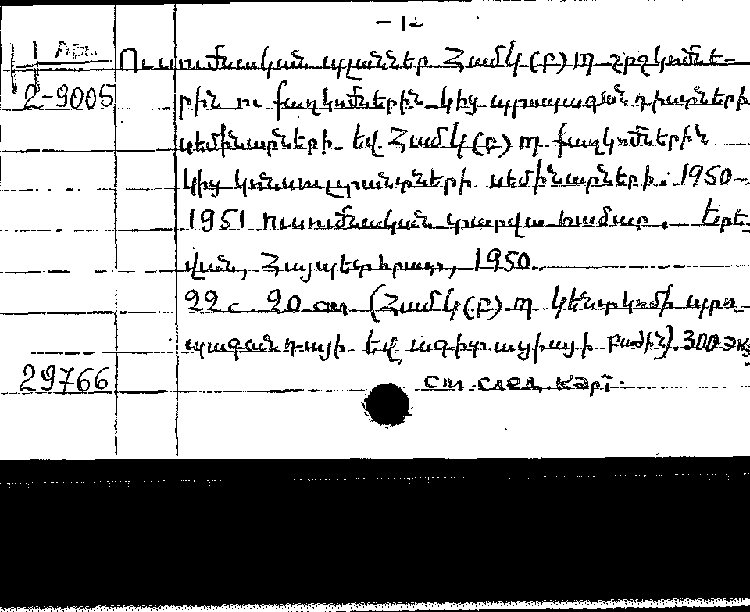 - 1 -
Ուսումնական պլաններ ՀամԿ(բ)Պ շրջկոմնե-
2-9005 րին ու քաղկոմներին կից պրոպագանդիստների
սեմինարների եվ ՀամԿ(բ)Պ քաղկոմներին
կից կոնսուլտանտների սեմինարների. 1950-
1951 ուսումնական տարվա համար. Երե-
վան, Հայպետհրատ, 1950.
22 с. 20 см (ՀամԿ(բ)Պ կենտկոմի պրո-
պագանդայի եվ ագիտացիայի բաժին). 300 экз
29766 см. след. карт.